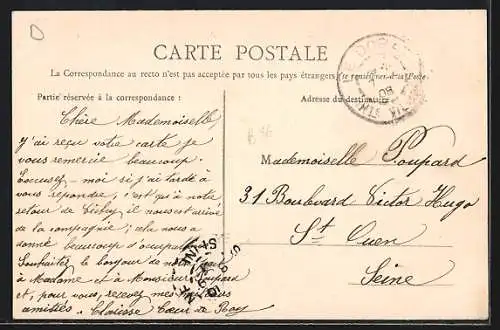 D
CARTE POSTALE
La Correspondance au recto n'est pas acceptée par tous les pays étrangers (se renseigner à la Poste
Partie réservée à la correspondance :
Adresse du destinataire
LE DORAT
08
Hte VIE
Chère Mademoiselle,
J'ai reçu votre carte je
vous remercie beaucoup.
Excusez-moi si j'ai tardé à
vous répondre, c'est qu'à notre
retour de Vichy il nous est arrivé
de la compagnie; cela nous a
donné beaucoup d'occupation
Souhaitez le bonjour de notre part
à Madame et à Monsieur Poupard
et, pour vous, recevez mes meilleurs
amitiés. Clarisse Cœur de Roy
Mademoiselle Poupard
31 Boulevard Victor Hugo
St Ouen
Seine
ST